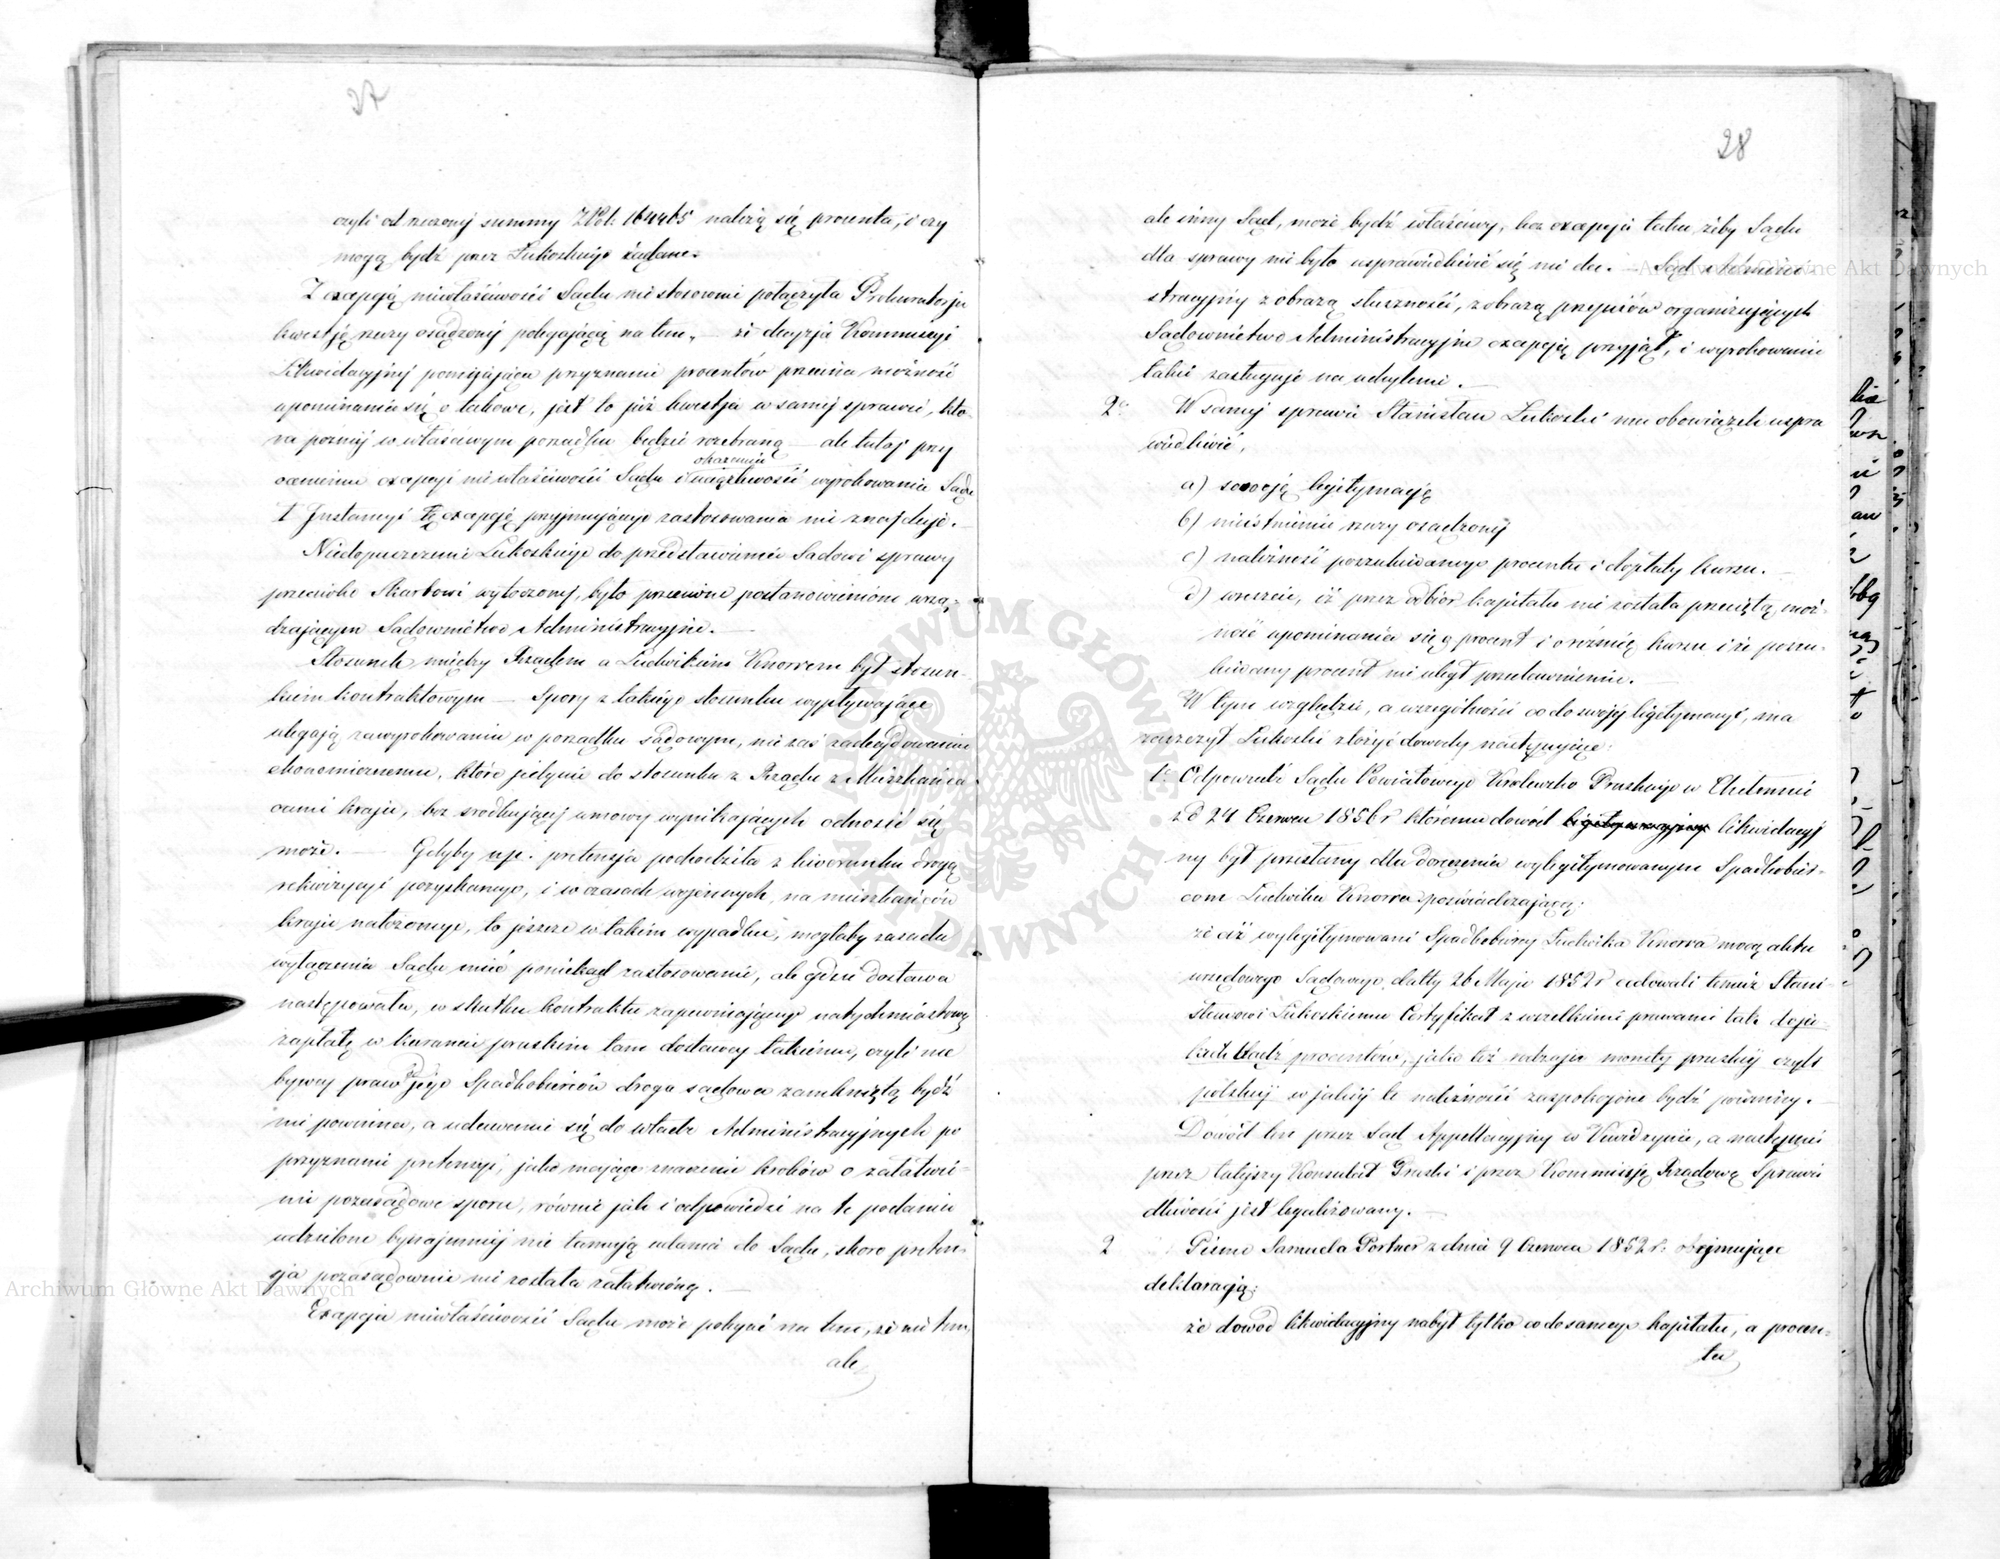 27
czyli od rzeczonej summy ZPol: 164465 należą się procenta, i czy
mogą bydź przez Lukoskiego żądane.
Z excepcją niewłaściwości Sądu niestosownie połączyła Prokuratorja
kwestję rzeczy osądzonej polegającą na tem, — że decyzja Kommissyi
Likwidacyjnej pomijająca przyznanie procentów przecina możność
upominania się o takowe, jest to już kwestja w samej sprawie, któ-
ra poźniej w właściwym porządku będzie rozebraną — ale tutaj przy
ocenieniu excepcji niewłaściwości Sądu i okazaniu uciążliwości wyrokowania Sądu
I Instancyi tę excepcję przyjmującego zastosowania nie znajduje. —
Niedopuszczenie Lukoskiego do przedstawienia Sądowi sprawy
przeciwko Skarbowi wytoczonej, było przeciwne postanowieniom urzą-
dzającym Sądownictwo Administracyjne. —
Stosunek między Rządem a Ludwikiem Knorrem był stosun-
kiem kontraktowym — Spory z takiego stosunku wypływające
ulegają zawyrokowaniu w porządku sądowym, nie zaś zadecydowaniu
ekonomicznemu, które jedynie do stosunku z Rządu z Mieszkań-
cami kraju, bez środkującej umowy wynikających odnosić się
może. — Gdyby np. pretensja pochodziła z liwerunku drogą
rekwizycyi pozyskanego, i w czasach wojennych na mieszkańców
kraju nałożonego, to jeszcze w takim wypadku, mogłaby zasada
wyłączenia Sądu mieć poniekąd zastosowanie, ale gdzie dostawa
następowała, w skutku kontraktu zapewniającego natychmiastową
zapłatę w kurancie pruskim tam dostawcy takiemu, czyli na-
bywcy praw jego Spadkobierców droga sądowa zamkniętą bydź
nie powinna, a udawanie się do władz Administracyjnych po
przyznanie pretensyi, jako mające znaczenie kroków o załatwie-
nie pozasądowe sporu, równie jak i odpowiedzi na te podania
udzielone bynajmniej nie tamują udania do Sądu, skoro preten-
sja pozasądownie nie została załatwioną. —
Excepcja niewłaściwości Sądu może polegać na tem, że nie ten,
ale
28
ale inny Sąd, może bydź właściwy, lecz excepcja taka, żeby Sądu
dla sprawy nie było usprawiedliwić się nie da. — Sąd Admini-
stracyjny z obrazą słuszności, z obrazą przepisów organizujących
Sądownictwo Administracyjne excepcją przyjął, i wyrokowanie
takie zasługuje na uchylenie. —
2o W samej sprawie Stanisław Lukoski ma obowiązek uspra
wiedliwić,
a) swoją legitymacją
b) nieistnienie rzeczy osądzonej
c) należność poszukiwanego procentu i dopłaty kursu. —
d) wreszcie, iż przez odbiór kapitału nie została przeciętą moż-
ność upominania się o procent i o różnicę kursu i że poszu-
kiwany procent nie uległ przedawnieniu. —
W tym względzie, a w szczególności co do swojej legitymacyi, ma
zaszczyt Lukoski złożyć dowody następujące:
1o Odpowiedź Sądu Powiatowego Królewsko Pruskiego w Chełmnie
z d 24 Czerwca 1856 r któremu dowód likwidacyj
ny był przesłany dla doręczenia wylegitymowanym Spadkobier-
com Ludwika Knorra poświadczającą:
że ciż wylegitymowani Spadkobiercy Ludwika Knorra mocą aktu
urzędowego Sądowego datty 26 Maja 1852 r cedowali temuż Stani-
sławowi Lukoskiemu Certyfikat z wszelkiemi prawami tak do ja-
kich bądź procentów, jako też rodzaju monety pruskiej czyli
polskiej w jakiej te należności zaspokojone bydź powinny. —
Dowód ten przez Sąd Appellacyjny w Kwidzynie, a następnie
przez tutejszy Konsulat Pruski i przez Kommissję Rządową Sprawie
dliwości jest legalizowany. —
2 Pismo Samuela Portner z dnia 9 Czerwca 1852 r. obejmujące
deklaracją:
że dowód likwidacyjny nabył tylko co do samego kapitału, a procen-
ta